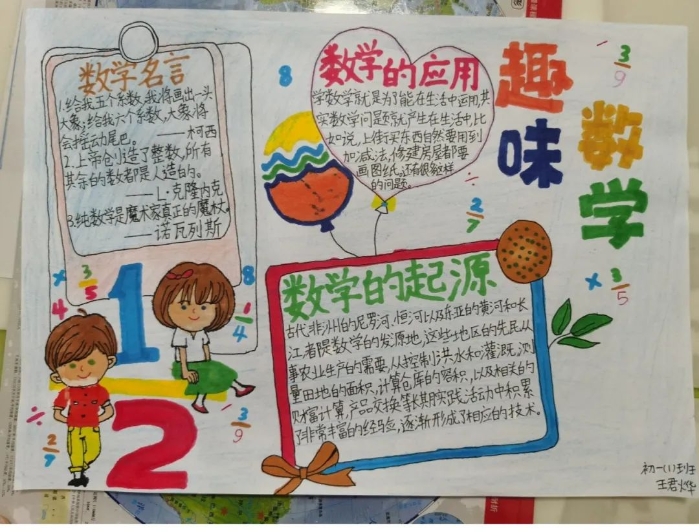 数学名言
1.给我五个系数,我将画出一头
大象,给我六个系数,大象将
会摇动尾巴。 ——柯西
2.上帝创造了整数,所有
其余的数都是人造的。
——L·克隆内克
3.纯数学是魔术家真正的魔杖。
——诺瓦列斯
8
数学的应用
学数学就是为了能在生活中运用,其
实数学问题就产生在生活中,比
如说,上街买东西自然要用到
加减法,修建房屋都要
画图纸,还有很多这样
的问题。
趣味
数学
3/9
÷
2/7
× 3/5
× 3/5
8
4
1/4
1
2
÷
2/7
3/9
数学的起源
古代非洲的尼罗河、恒河以及东亚的黄河和长
江,都是数学的发源地,这些地区的先民从
事农业生产的需要,从控制洪水和灌溉,测
量田地的面积,计算仓库的容积,以及相关的
财富计算,产品交换等长期实践活动中积累
了非常丰富的经验,逐渐形成了相应的技术。
初一(1)班
王君烨